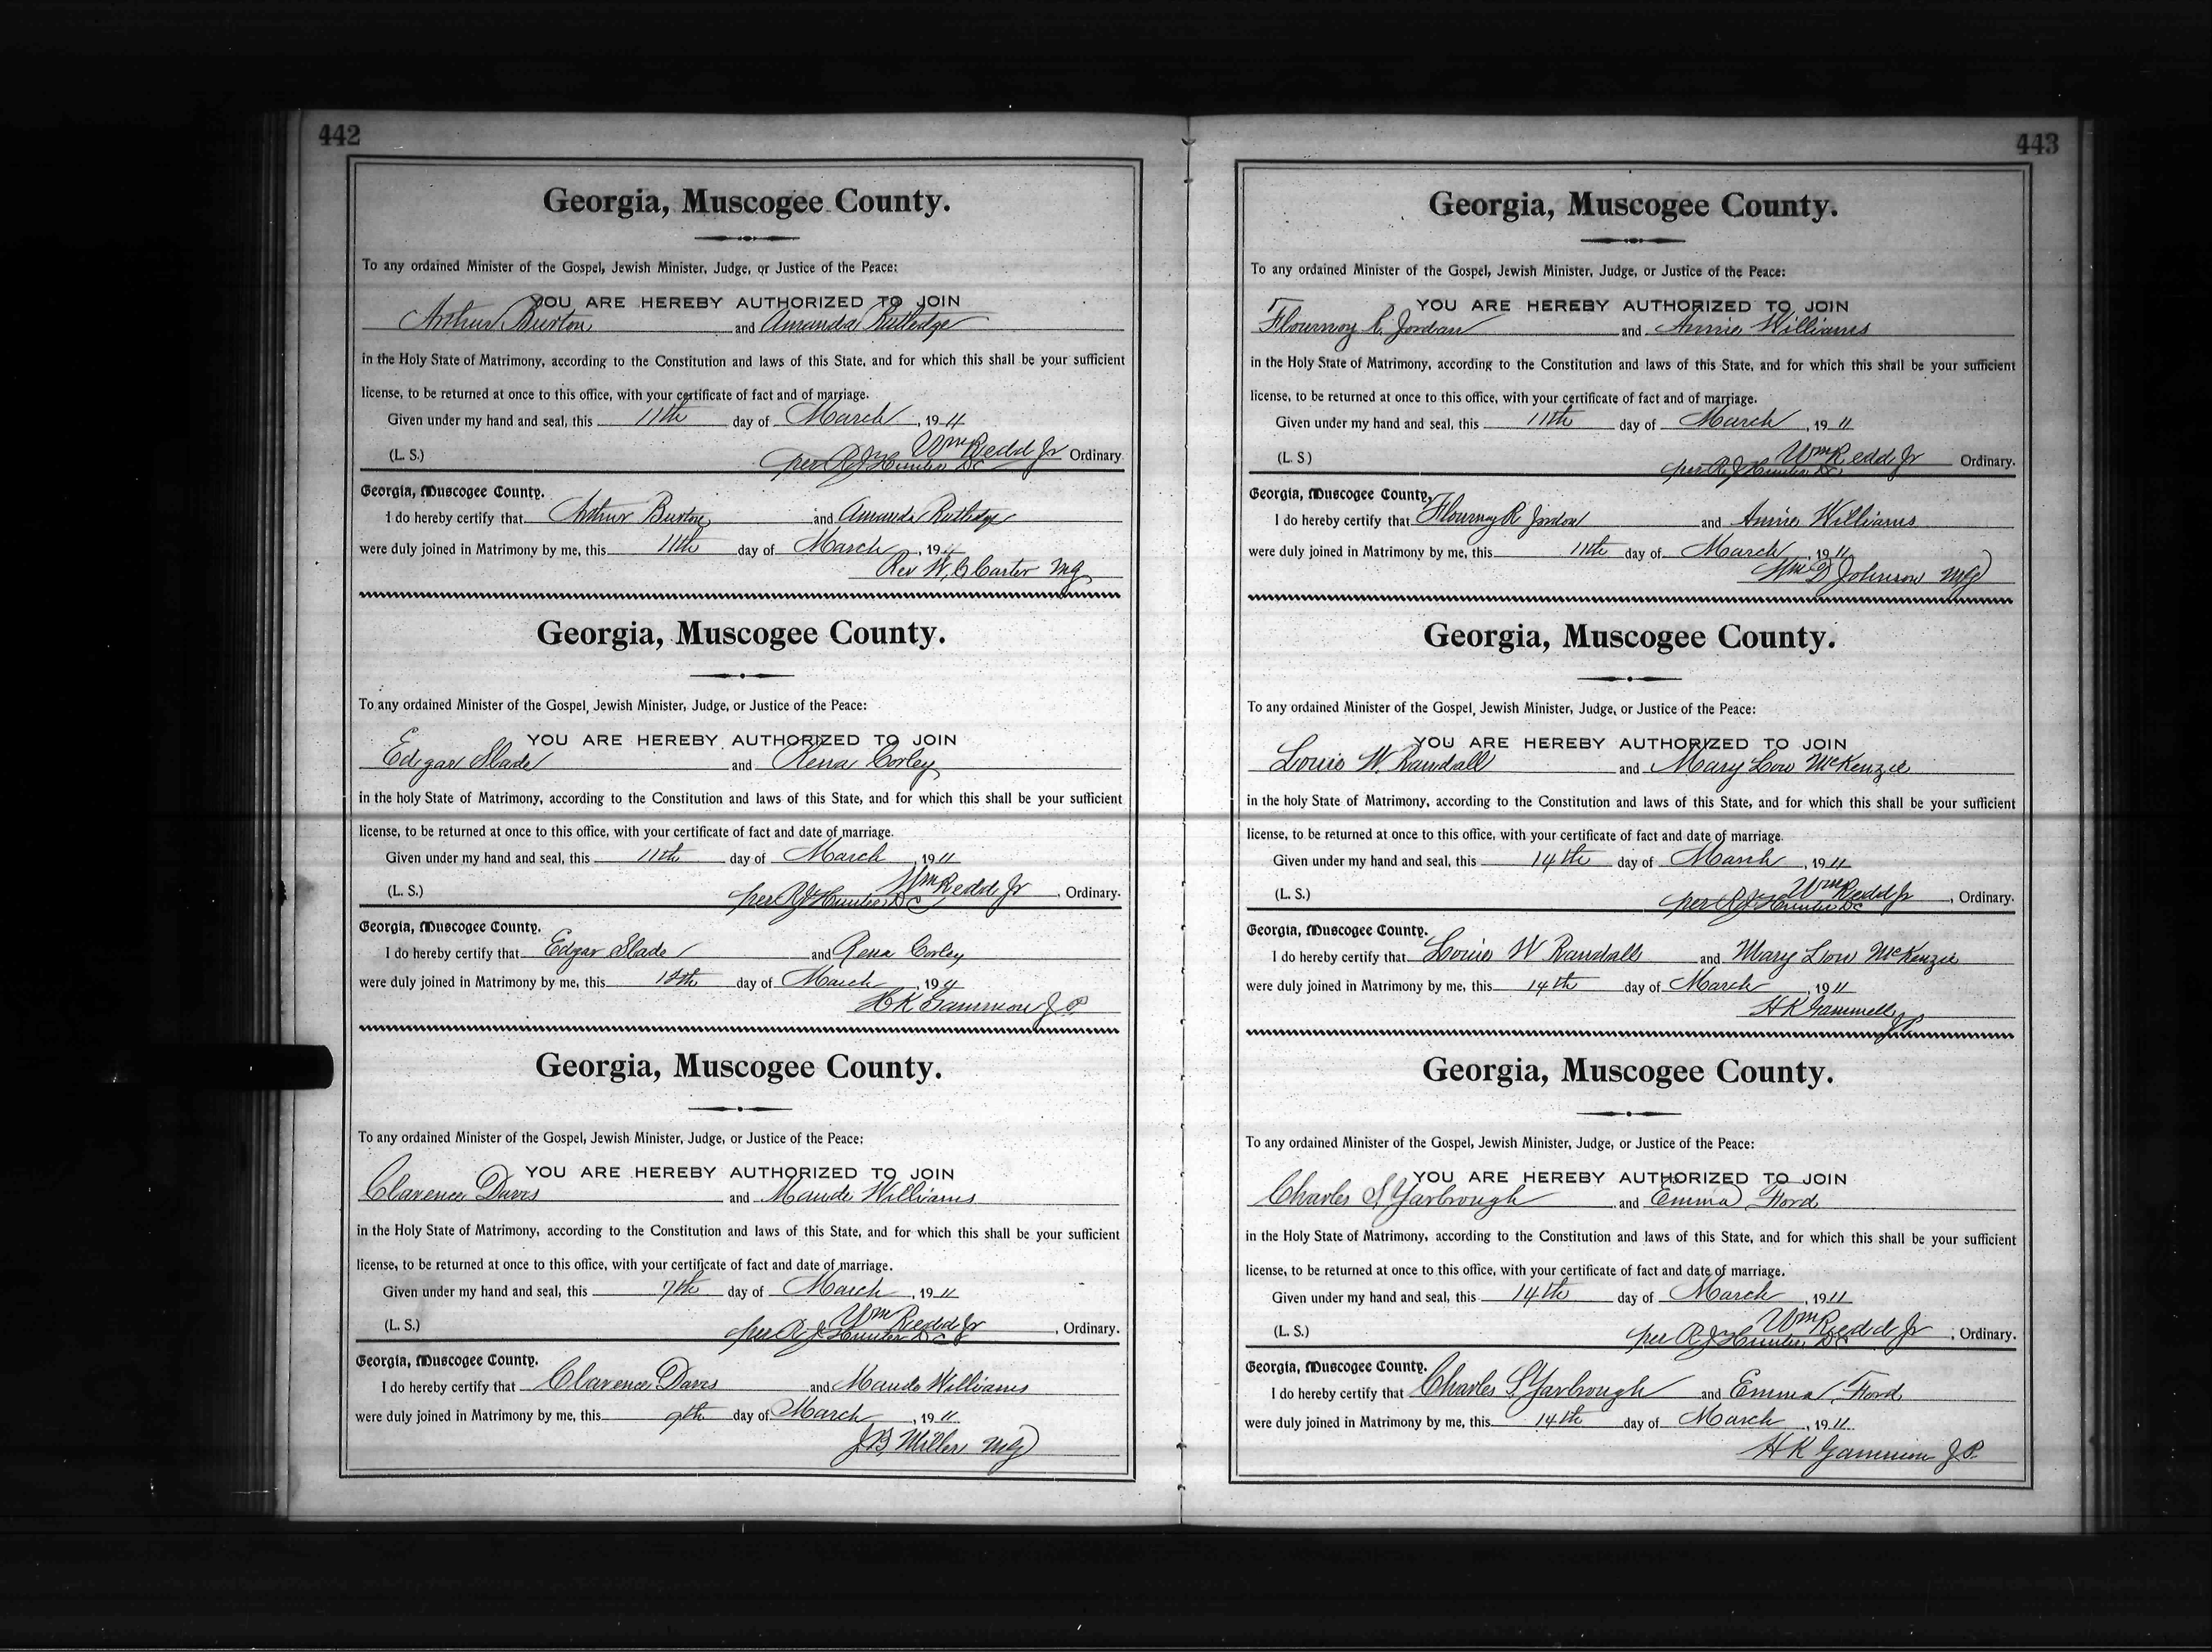 442
Georgia, Muscogee County.
To any ordained Minister of the Gospel, Jewish Minister, Judge, or Justice of the Peace:
YOU ARE HEREBY AUTHORIZED TO JOIN
Arthur Burton and Amanda Rutledge
in the Holy State of Matrimony, according to the Constitution and laws of this State, and for which this shall be your sufficient
license, to be returned at once to this office, with your certificate of fact and of marriage.
Given under my hand and seal, this 11th day of March, 1911
(L. S.) Wm Redd Jr Ordinary
per R J Hunter DC
Georgia, Muscogee County.
I do hereby certify that Arthur Burton and Amanda Rutledge
were duly joined in Matrimony by me, this 11th day of March, 1911
Rev W, C Carter MG
Georgia, Muscogee County.
To any ordained Minister of the Gospel, Jewish Minister, Judge, or Justice of the Peace:
YOU ARE HEREBY AUTHORIZED TO JOIN
Edgar Slade and Rena Corley
in the holy State of Matrimony, according to the Constitution and laws of this State, and for which this shall be your sufficient
license, to be returned at once to this office, with your certificate of fact and date of marriage.
Given under my hand and seal, this 11th day of March, 1911
(L. S.) Wm Redd Jr, Ordinary.
per R J Hunter DC
Georgia, Muscogee County.
I do hereby certify that Edgar Slade and Rena Corley
were duly joined in Matrimony by me, this day of March, 1911
H K Gammon J P.
Georgia, Muscogee County.
To any ordained Minister of the Gospel, Jewish Minister, Judge, or Justice of the Peace:
YOU ARE HEREBY AUTHORIZED TO JOIN
Clarence Davis and Maude Williams
in the Holy State of Matrimony, according to the Constitution and laws of this State, and for which this shall be your sufficient
license, to be returned at once to this office, with your certificate of fact and date of marriage.
Given under my hand and seal, this 7th day of March, 1911
(L. S.) Wm Redd Jr, Ordinary.
per R J Hunter DC
Georgia, Muscogee County.
I do hereby certify that Clarence Davis and Maude Williams
were duly joined in Matrimony by me, this 9th day of March, 1911
J B Miller MG
443
Georgia, Muscogee County.
To any ordained Minister of the Gospel, Jewish Minister, Judge, or Justice of the Peace:
YOU ARE HEREBY AUTHORIZED TO JOIN
Flournoy R. Jordan and Annie Williams
in the Holy State of Matrimony, according to the Constitution and laws of this State, and for which this shall be your sufficient
license, to be returned at once to this office, with your certificate of fact and of marriage.
Given under my hand and seal, this 11th day of March, 1911
(L. S) Wm Redd Jr Ordinary.
per R J Hunter DC
Georgia, Muscogee County.
I do hereby certify that Flournoy R Jordan and Annie Williams
were duly joined in Matrimony by me, this 11th day of March, 1911
Wm D Johnson MG
Georgia, Muscogee County.
To any ordained Minister of the Gospel, Jewish Minister, Judge, or Justice of the Peace:
YOU ARE HEREBY AUTHORIZED TO JOIN
Louis W. Randall and Mary Lou McKenzie
in the holy State of Matrimony, according to the Constitution and laws of this State, and for which this shall be your sufficient
license, to be returned at once to this office, with your certificate of fact and date of marriage.
Given under my hand and seal, this 14th day of March, 1911
(L. S.) Wm Redd Jr, Ordinary.
per R J Hunter DC
Georgia, Muscogee County.
I do hereby certify that Louis W Randall and Mary Lou McKenzie
were duly joined in Matrimony by me, this 14th day of March, 1911
H K Gammell JP
Georgia, Muscogee County.
To any ordained Minister of the Gospel, Jewish Minister, Judge, or Justice of the Peace:
YOU ARE HEREBY AUTHORIZED TO JOIN
Charles S Yarbrough and Emma Ford
in the Holy State of Matrimony, according to the Constitution and laws of this State, and for which this shall be your sufficient
license, to be returned at once to this office, with your certificate of fact and date of marriage.
Given under my hand and seal, this 14th day of March, 1911
(L. S.) Wm Redd Jr, Ordinary.
per R J Hunter DC
Georgia, Muscogee County.
I do hereby certify that Charles S Yarbrough and Emma Ford
were duly joined in Matrimony by me, this 14th day of March, 1911
H K Gammon J P.